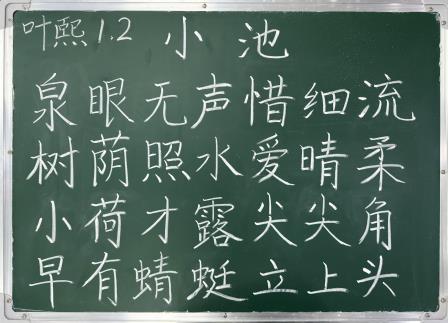 叶熙 1.2 小池
泉眼无声惜细流
树荫照水爱晴柔
小荷才露尖尖角
早有蜻蜓立上头